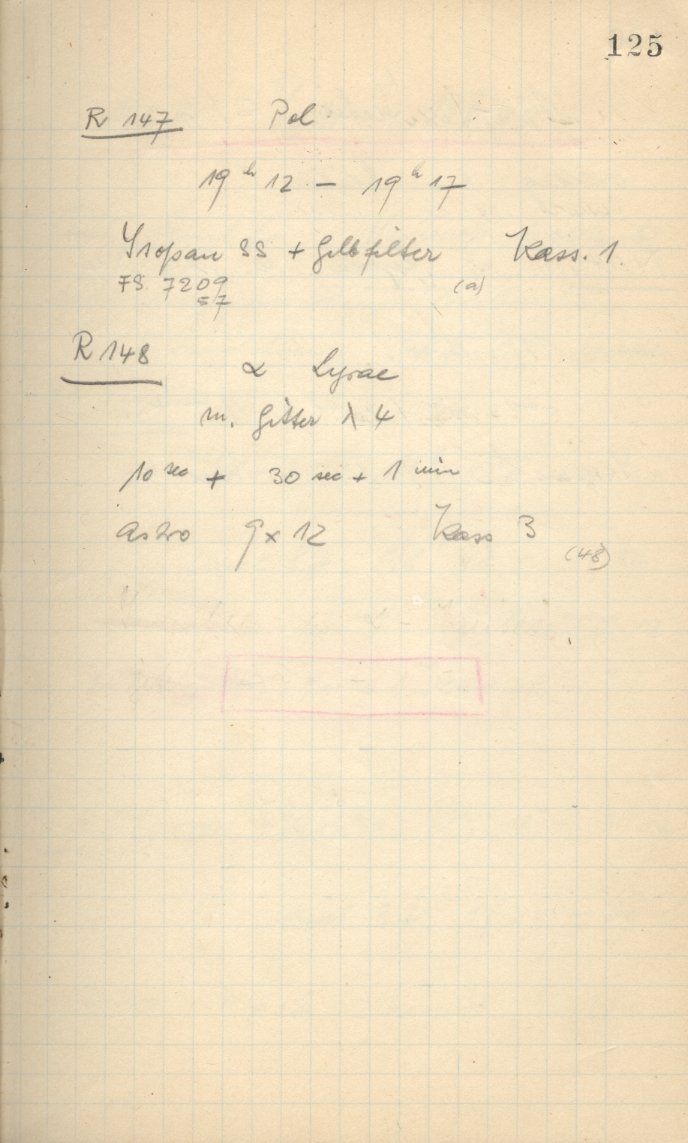 125
R 147 Pol
19h 12 – 19h 17
Isopan SS + Gelbfilter Kass. 1.
FS 7209 (a)
57
R 148
α Lyrae
m. Gitter λ 4
10 sec + 30 sec + 1 min
Astro 9 x 12 Kass 3
(48)